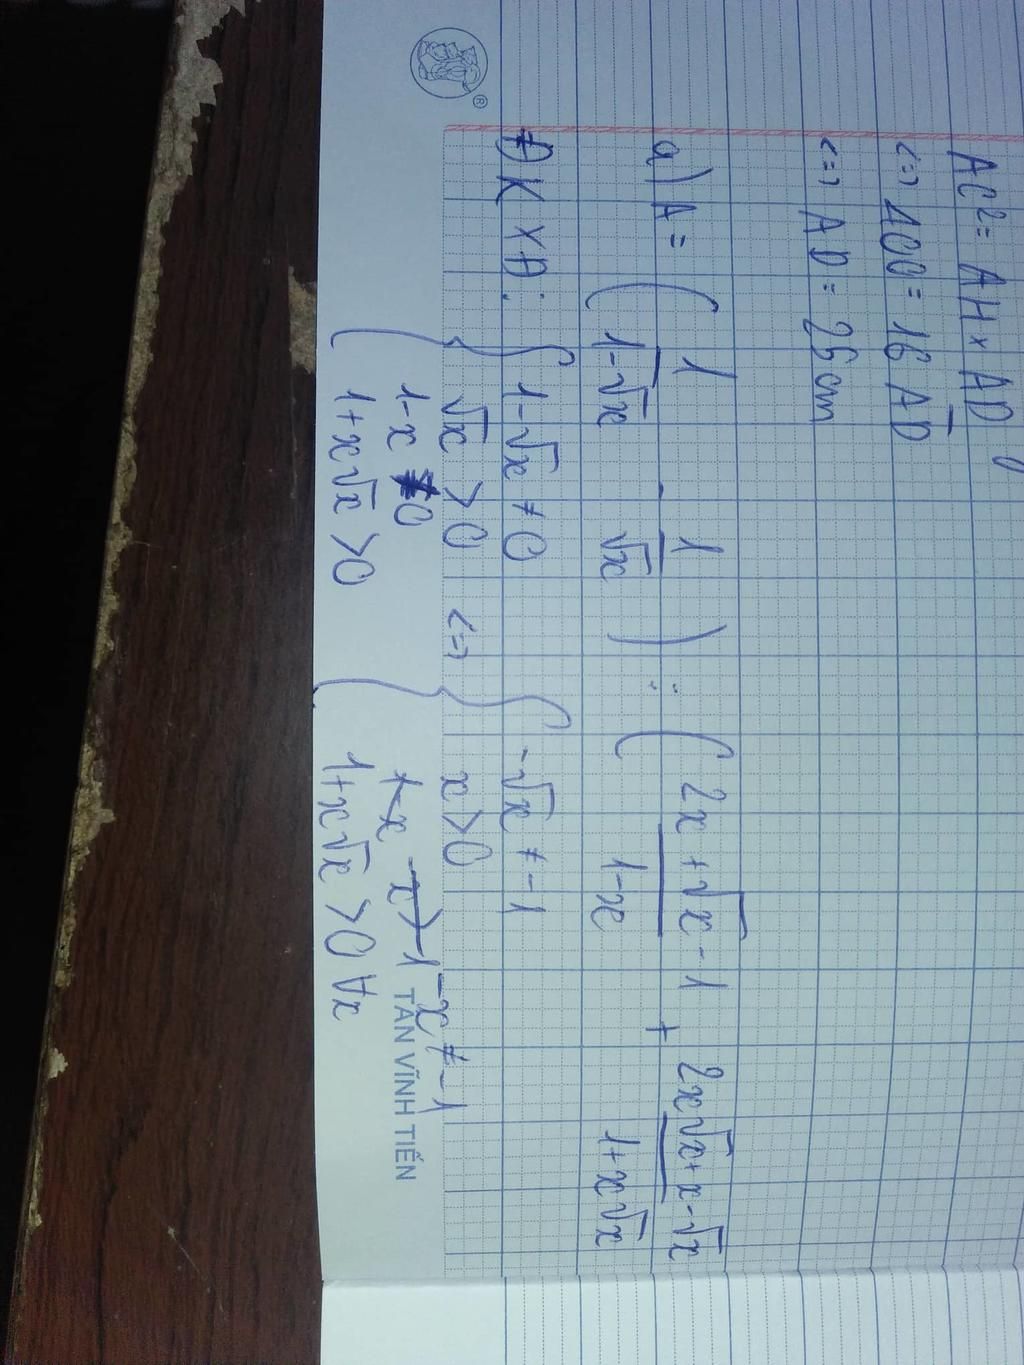 AC² = AH × AD
<=> 400 = 16 AD
<=> AD = 25 cm
a) A = ( 1/(1-√x) - 1/√x ) : ( (2x+√x-1)/(1-x) + (2x√x+x-√x)/(1+x√x) )
ĐKXĐ: { 1-√x ≠ 0 { -√x ≠ -1
√x > 0 <=> x > 0
1-x ≠ 0 -x ≠ -1
1+x√x > 0 1+x√x > 0 ∀x
TÂN VĨNH TIẾN
®